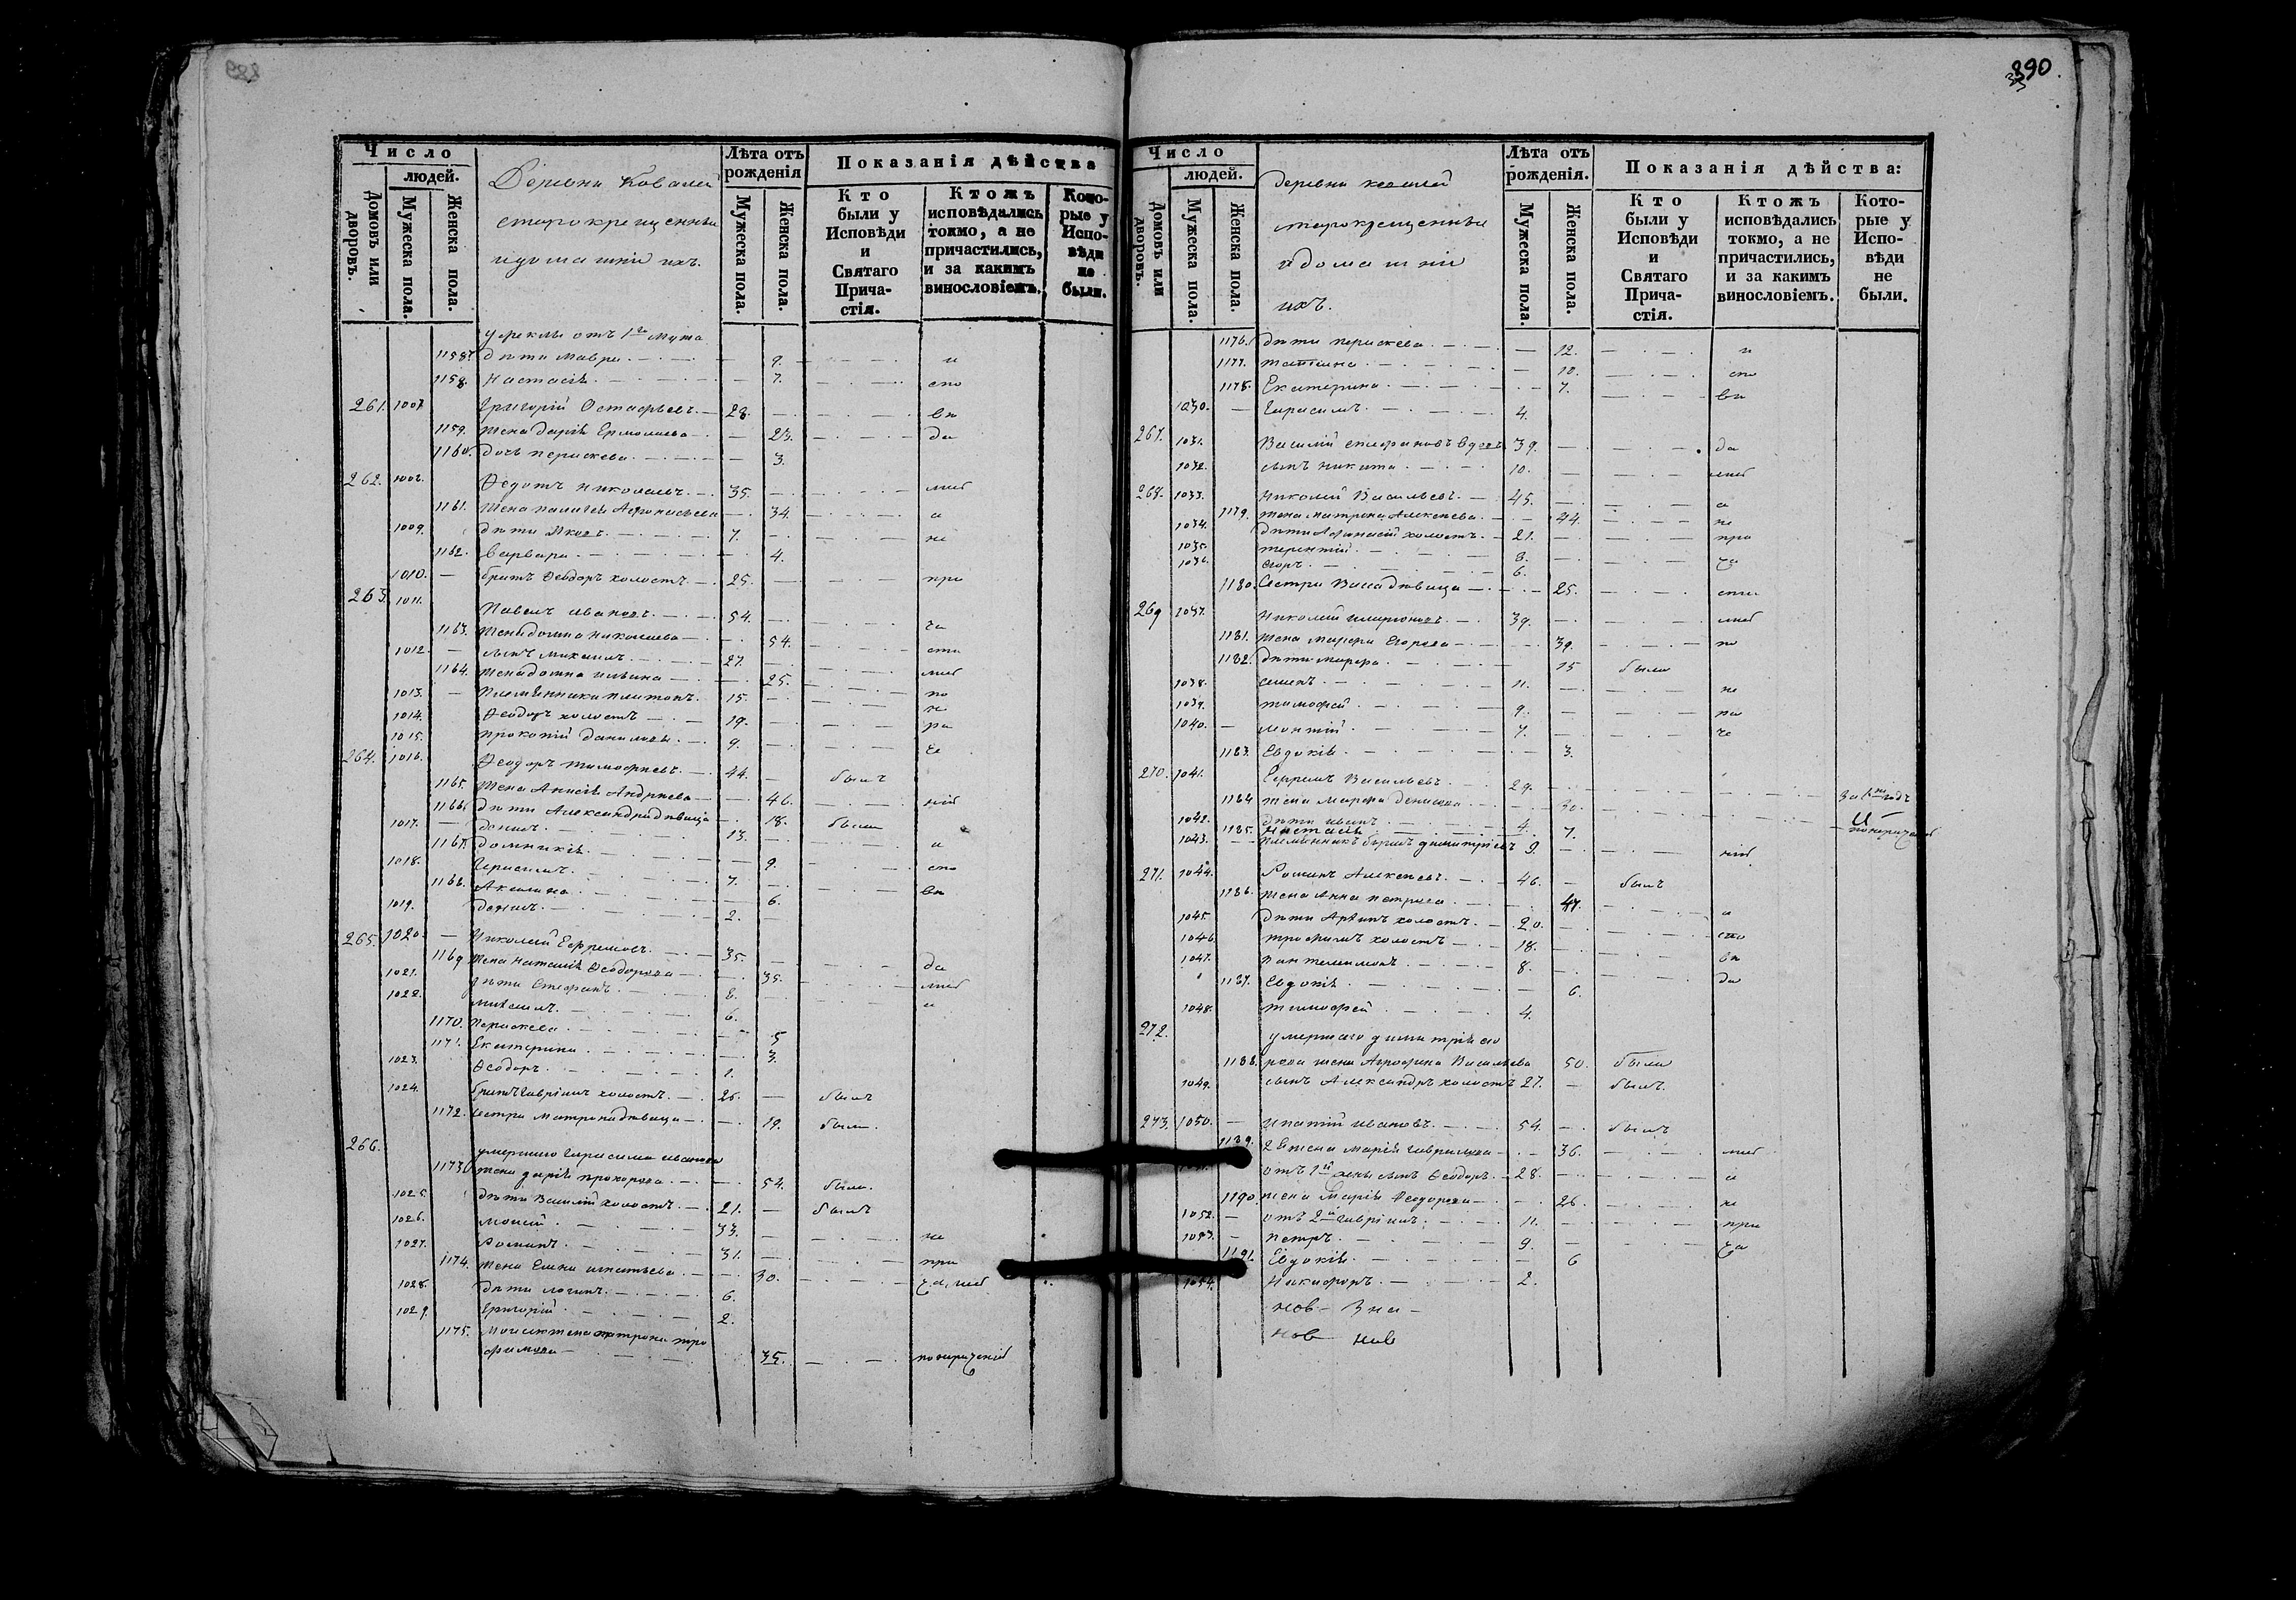 890
Число
людей.
Домовъ или дворовъ.
Мужеска пола.
Женска пола.
Деревни Ковалей
старокрещенныи
и домашніи ихъ.
Лѣта отъ рожденія
Мужеска пола.
Женска пола.
Показанія дѣйства
Кто были у Исповѣди и Святаго Причастія.
Ктожъ исповѣдались токмо, а не причастились, и за какимъ винословіемъ.
Которые у Исповѣди не были.
отъ 1го мужа
1158. дѣти Мавра 9. и
1158. Настасія 7. спо
261. 1007. Григорій Остафьевъ 28. вѣ
1159. жена Дарія Ермолаева 23. да
1160. дочь Параскева 3.
262. 1008. Ѳедотъ Николаевъ 35.
1161. жена Палагея Афонасьева 34. а
1009. дѣти Яковъ 7. не
1162. Варвара 4.
1010. братъ Ѳеодоръ холостъ 25. при
263. 1011. Павелъ Ивановъ 54. ча
1163. жена Домна Николаева 54. сти
1012. сынъ Михаилъ 27.
1164. жена Домна Ильина 25. по
1013. Племянники Платонъ 15. не
1014. Ѳеодоръ холостъ 19. ра
1015. Прокопій Даниловы 9. че
264. 1016. Ѳеодоръ Тимофеевъ 44. былъ
1165. жена Анисія Андреева 46. ніе
1166. дѣти Александра дѣвица 18. была
1017. Данилъ 13.
1167. Домникія 9. и
1018. Герасимъ 7. спо
1168. Акилина 6. вѣ
1019. Данилъ 2.
265. 1020. Николай Ефремовъ 35. да
1169. жена Наталія Ѳеодорова 35.
1021. дѣти Стефанъ 8. и
1022. 6.
1170. Параскева 5
1171. Екатерина 3.
1023. Ѳеодоръ 1.
1024. братъ Гавріилъ холостъ 26. былъ
1172. сестра Матрона дѣвица 19. была.
266. умершаго Герасима Иванова
1173. жена Дарія Прохорова 54. была.
1025. дѣти Василій холостъ 21. былъ
1026. Моисей 33. не
1027. Романъ 31. при
1174. жена Елена Игнатьева 30.
1028. дѣти Логинъ 6.
1029. Григорій 2.
1175. Моисея жена Матрона Тро
фимова 35.
Число
людей.
Домовъ или дворовъ.
Мужеска пола.
Женска пола.
деревни Ковалей
старокрещенныи
и домашніи
ихъ.
Лѣта отъ рожденія.
Мужеска пола.
Женска пола.
Показанія дѣйства:
Кто были у Исповѣди и Святаго Причастія.
Ктожъ исповѣдались токмо, а не причастились, и за какимъ винословіемъ.
Которые у Исповѣди не были.
1176. дѣти Параскева 12. и
1177. Татіана 10. спо
1178. Екатерина 7. вѣ
1030. Герасимъ 4.
267. 1031. Василій Стефановъ вдовъ 39. да
1032. сынъ Никита 10.
268. 1033. Николай Васильевъ 45. а
1179. жена Матрона Алексеева 44. не
1034. дѣти Афанасій холостъ 21. при
1035. Терентій 8. ча
1036. Егоръ 6.
1180. Сестра дѣвица 25. сти
269 1037. Николай Иларіоновъ 39.
1181. жена Марфа Егорова 39. по
1182. дѣти Марфа 15 была
1038. Семенъ 11. не
1039. Тимофей 9. ра
1040. 7. че
1183. Евдокія 3.
270. 1041. Ефремъ Васильевъ 29.
1184 жена Марфа Денисова 30.
1042. дѣти Иванъ 4.
1185. Настасія 7.
1043. Племянникъ Димитріевъ 9. ніе
271. 1044. Романъ Алексеевъ 46. былъ
1186. жена Анна Петрова 47. и
1045. дѣти Архипъ холостъ 20. спо
1046. Трофимъ холостъ 18. вѣ
1047. Пантелимонъ 8. да
1187. Евдокія 6.
1048. Тимофей 4.
272. умершаго Димитрія Его
1188. рова жена Агрофена Васильева 50. была
1049. сынъ Александръ холостъ 27. былъ.
273. 1050. Ипатій Ивановъ 54. былъ
1189. 2я жена Марія Гаврилова 36.
отъ 1й жены сынъ Ѳеодоръ 28. а
1190. жена Марія Ѳеодорова 26. не
1052. отъ 2й Гавріилъ 11. при
1053. Петръ 9. ча
1191. Евдокія 6
1054. Никифоръ 2.